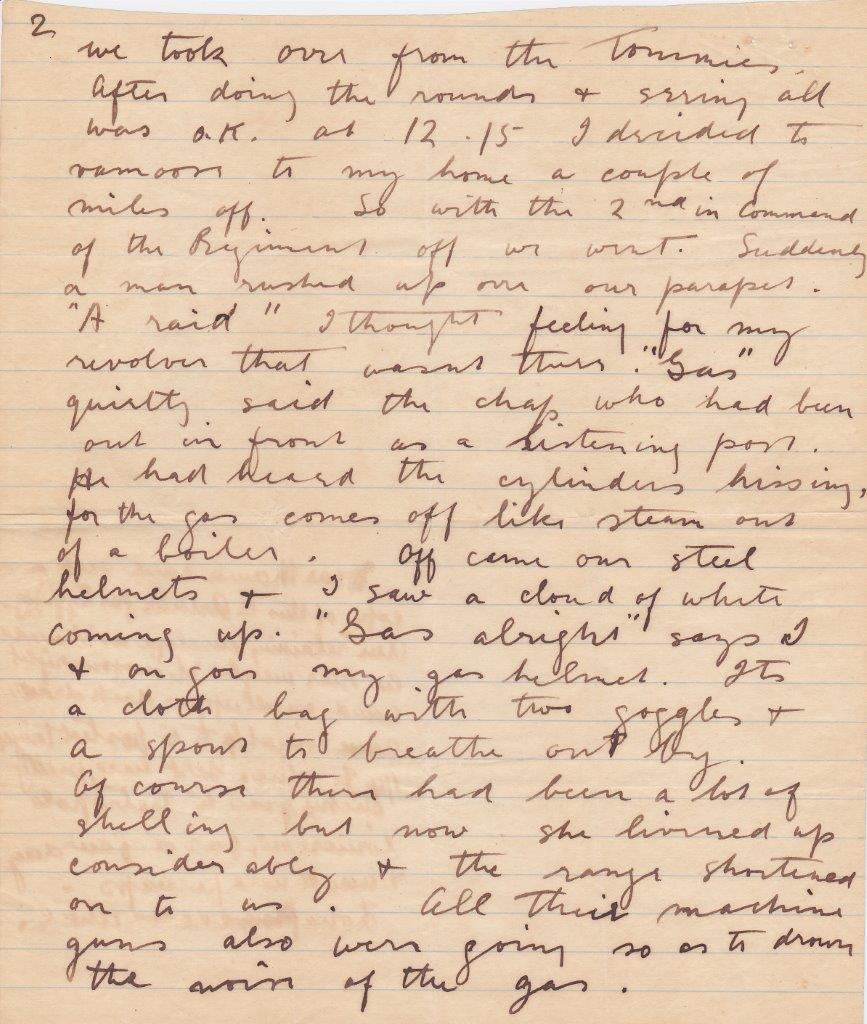 2
we took over from the Tommies.
After doing the rounds & seeing all
was o.K. at 12.15 I decided to
vamoose to my home a couple of
miles off. So with the 2nd in Command
of the Regiment off we went. Suddenly
a man rushed up over our parapet.
"A raid" I thought feeling for my
revolver that wasnt there. "Gas"
quietly said the chap who had been
out in front as a listening post.
He had heard the cylinders hissing,
for the gas comes off like steam out
of a boiler. Off came our steel
helmets & I saw a cloud of white
coming up. "Gas alright" says I
& on goes my gas helmet. Its
a cloth bag with two goggles &
a spout to breathe out by.
Of course there had been a lot of
shelling but now she livened up
considerably & the range shortened
on to us. All their machine
guns also were going so as to drown
the noise of the gas.